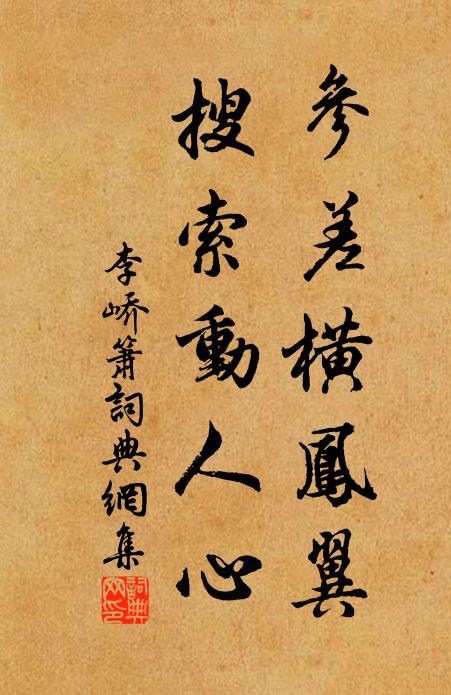 參差橫鳳翼
搜索動人心
李嶠簫詞典網集
詞典网印